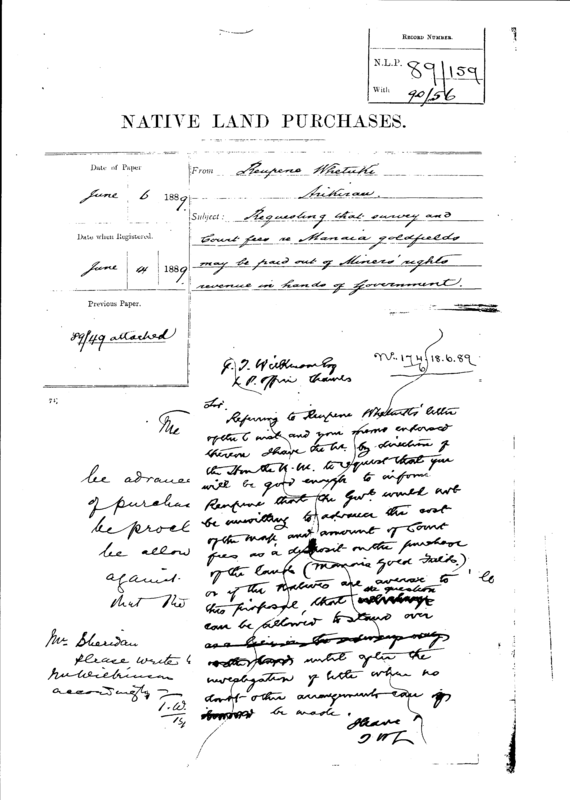 RECORD NUMBER.
N.L.P. 89/159
With 90/56
NATIVE LAND PURCHASES.
Date of Paper
June 6 1889
Date when Registered.
June 1889
Previous Paper.
89/49 attached
From: Reupene Whetuki
Arikirau.
Subject: Requesting that survey and
Court fees re Manaia goldfields
may be paid out of Miners' rights
revenue in hands of Government.
No 174/6 18.6.89
J. T. Wilkinson Esq
L P. Office Thames
Sir
Referring to Reupene Whetuki's letter
of the 6 inst and your memo endorsed
thereon I have the hr. by direction of
the Hon the N. M. to request that you
will be good enough to inform
Reupene that the Govt. would not
be unwilling to advance the cost
of the map and amount of Court
fees as a deposit on the purchase
of the lands (Manaia Gold Fields)
or if the Natives are averse to
this proposal, that the question
can be allowed to stand over
until after the
investigation of title when no
doubt other arrangements can
be made.
I have
The
be advance
of purchas
be procl
be allow
against
that the
Mr Sheridan
Please write to
Mr Wilkinson
accordingly
T.W.